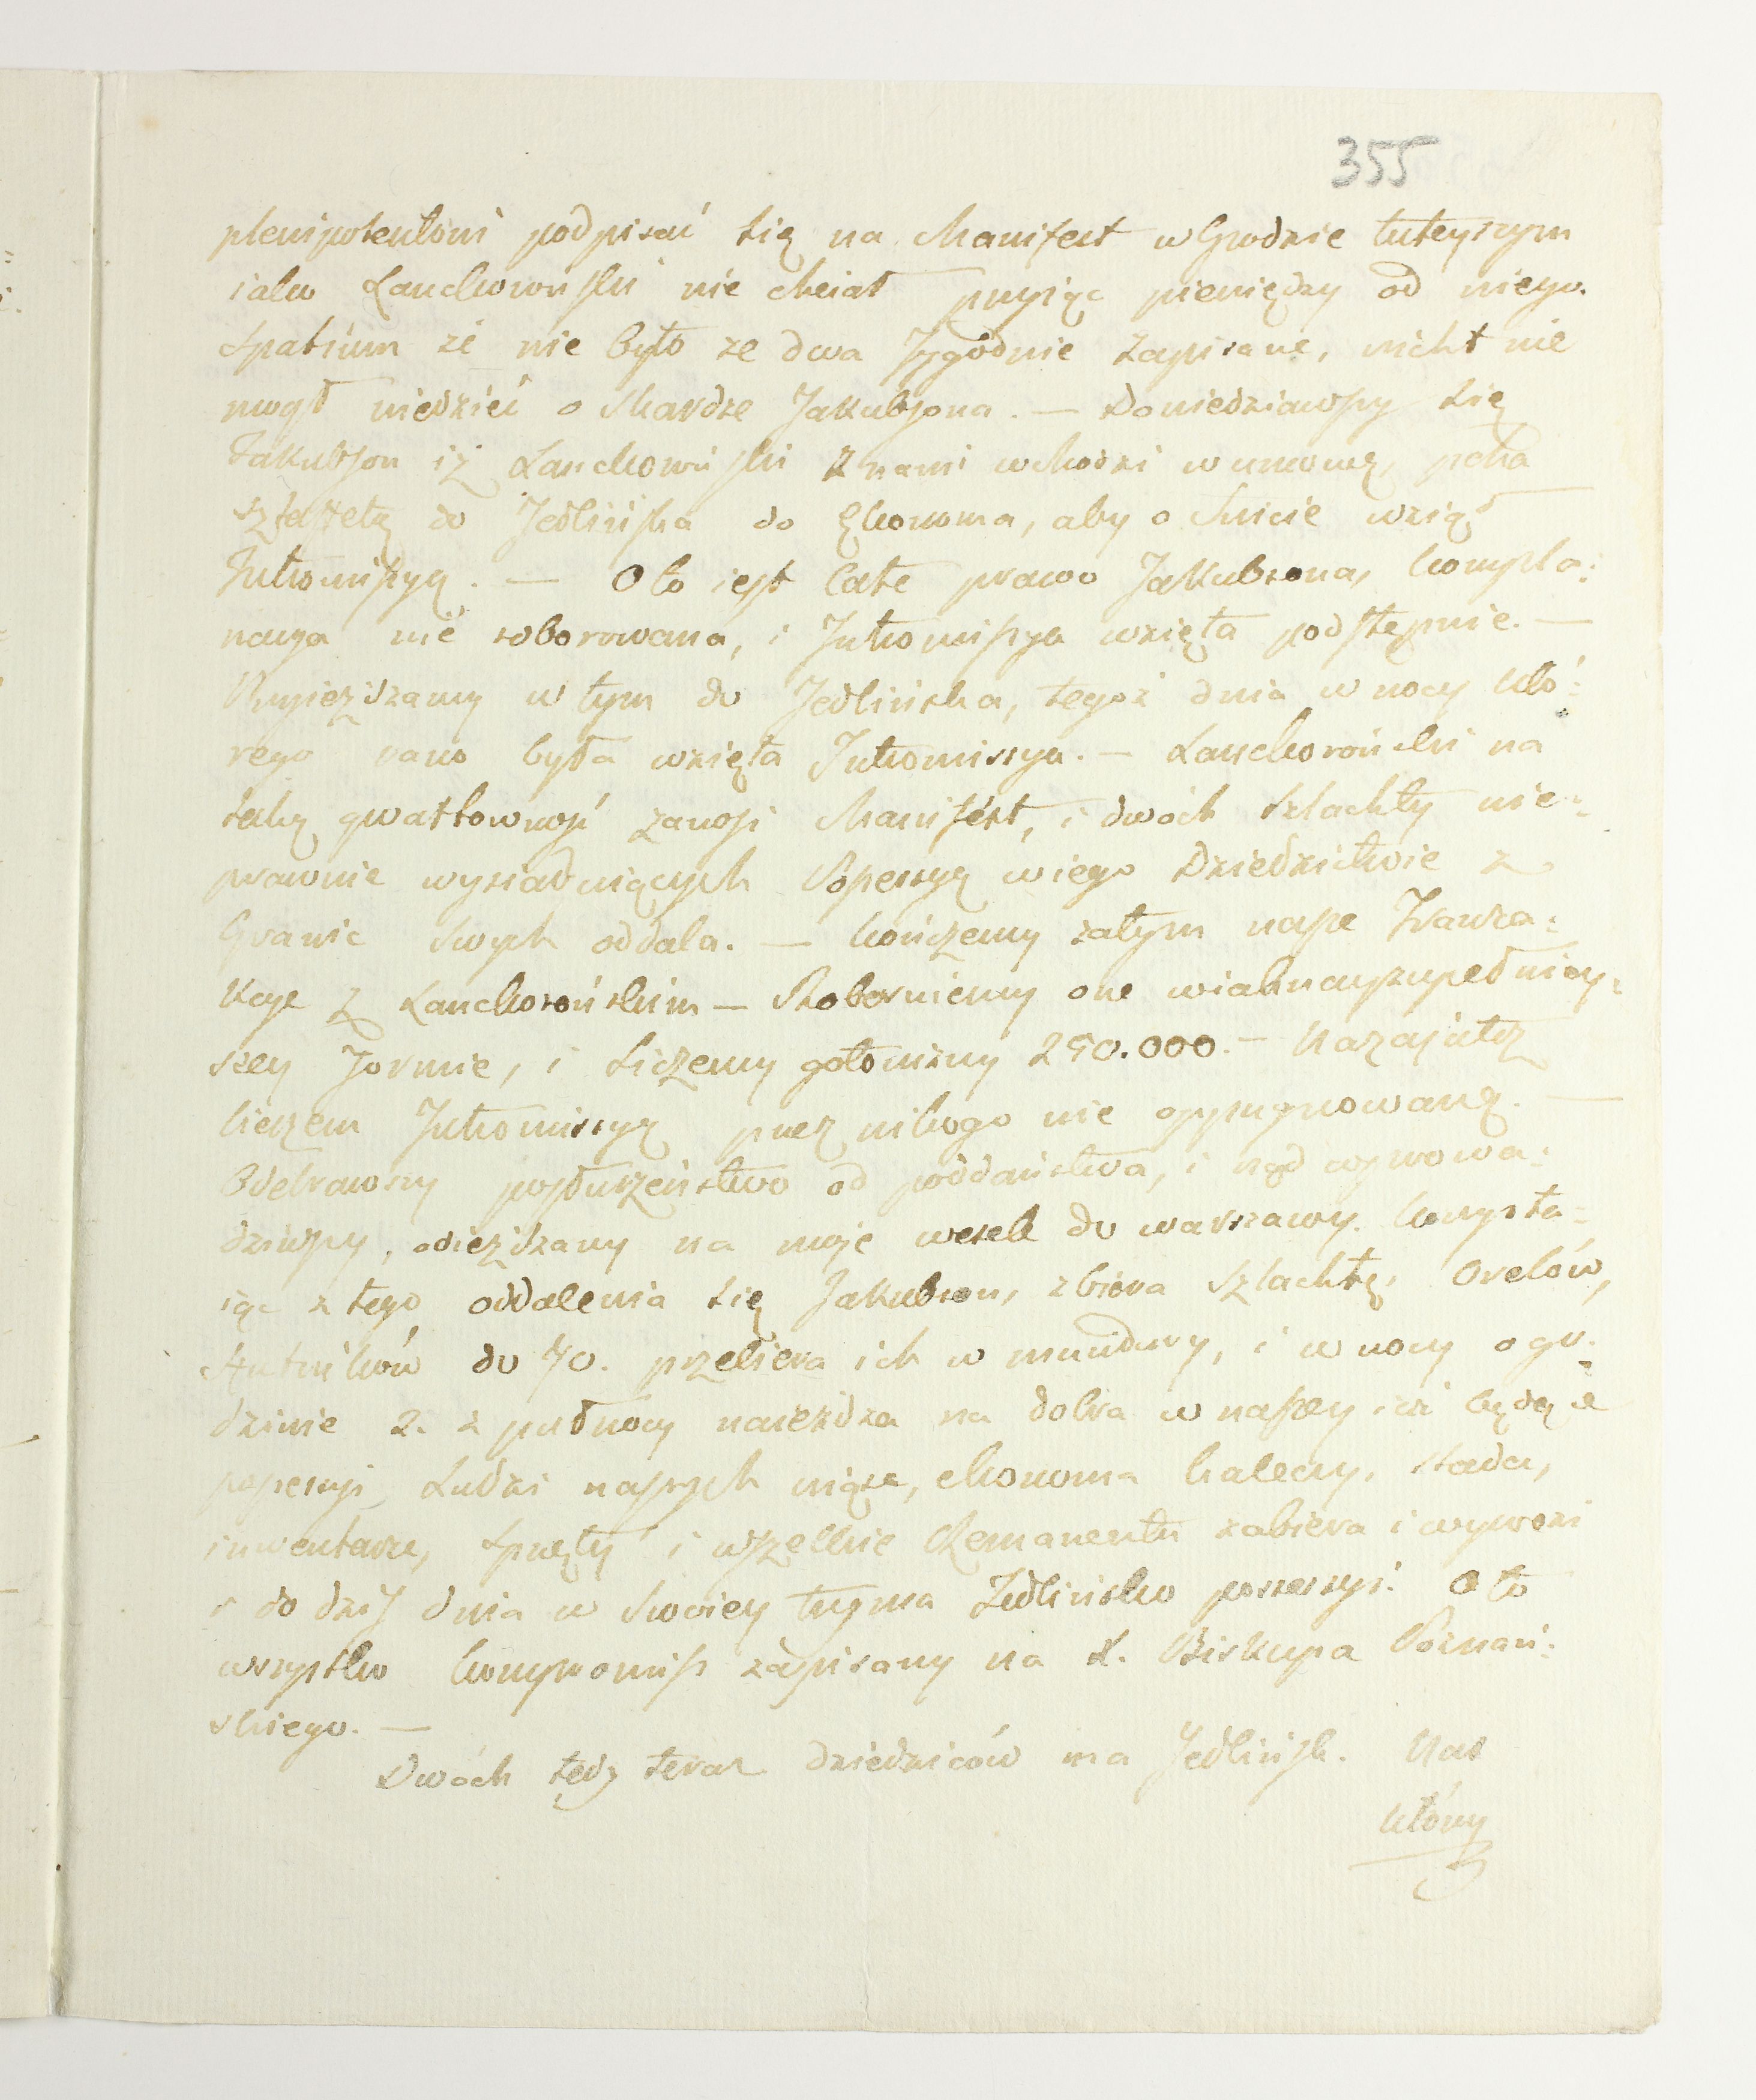 355
plenipotentowi podpisać się na Manifest w Grodzie tuteyszym
iako Lanckoroński nie chciał przyiąc pieniędzy od niego.
Spatium że nie było ze dwa Tygodnie zapisane, nicht nie
mogł wiedzieć o skardze Jakubsona. — Dowiedziawszy się
Jakubson iż Lanckoroński z nami wchodzi w umowę, pcha
sztafetę do Jedlińska do Ekonoma, aby o świcie wziął
Intromissyą. — Oto iest całe prawo Jakubsona, kompla:
nacya nie roborowana, i Intromissya wzięta podstępnie. —
Przyieżdżamy w tym do Jedlińska, tegoż dnia w nocy któ:
rego rano była wzięta Intromissya. — Lanckoroński na
taką gwałtowność zanosi Manifest, i dwóch szlachty nie:
prawnie wysiaduiących Possessyą w iego Dziedzictwie z
Granic swych oddala. — Kończemy zatym nasze Tranza:
kcye z Lanckorońskim — Roboruiemy one w iaknayzupełniey:
szey Formie, i liczemy gotowizny 290.000. — Nazajutrz
bierzem Intromissyą przez nikogo nie oppugnowaną. —
Odebrawszy posłuszeństwo od poddaństwa, i rząd wprowa:
dziwszy, odieżdżamy na moje wesele do Warszawy. Korzysta:
iąc z tego oddalenia się Jakubson, zbiera szlachtę, Orelów,
Autrików do 70. przebiera ich w mundury, i w nocy o go:
dzinie 2. z pułnocy naieżdża na dobra w naszey iuż będące
possessyi Ludzi naszych wiąże, ekonoma kaleczy, stada,
inwentarze, sprzęty i wszelkie Remanenta zabiera i wywozi
i do dziś dnia w swoiey trzyma Jedlińsko possessyi. Oto
wszystko kompromiss zapisany na X. Biskupa Poznań:
skiego. —
Dwóch tedy teraz dziedziców ma Jedlińsk. Nas
którzy